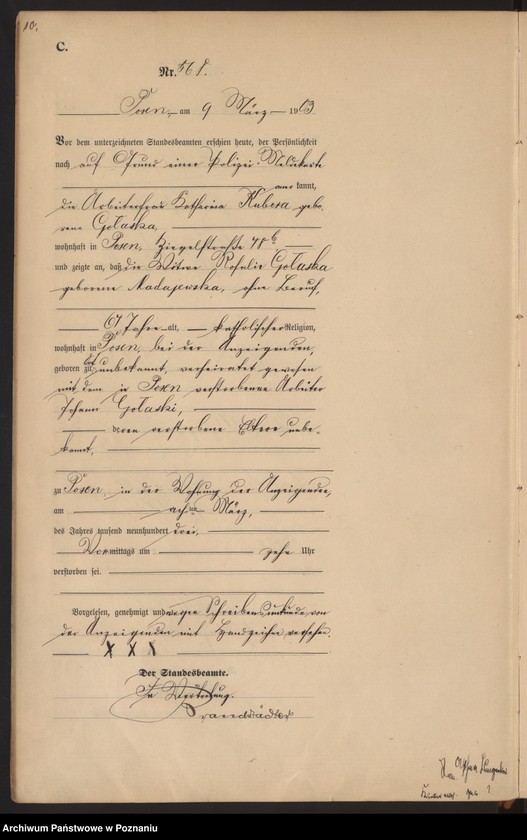 10.
C.
Nr. 568.
Posen, am 9 März 1903
Vor dem unterzeichneten Standesbeamten erschien heute, der Persönlichkeit
nach auf Grund einer Polizei-Meldekarte
anerkannt,
die Arbeiterfrau Katharina Kubera gebo-
rene Gołaska,
wohnhaft in Posen, Ziegelstraße
und zeigte an, daß die Witwe Rosalie Gołaska
geborene Madajewska, ohne Beruf,
67 Jahre alt, katholischer Religion,
wohnhaft in Posen, bei der Anzeigenden,
geboren zu unbekannt, verheiratet gewesen
mit dem in Posen verstorbenen Arbeiter
Johann Gołaski,
deren verstorbene Eltern unbe-
kannt,
zu Posen, in der Wohnung der Anzeigenden,
am achten März,
des Jahres tausend neunhundert drei,
Vormittags um zehn Uhr
verstorben sei.
Vorgelesen, genehmigt und wegen Schreibensunkunde von
der Anzeigenden mit Handzeichen versehen.
X X X
Der Standesbeamte.
In Vertretung.
Brandstädter
Archiwum Państwowe w Poznaniu